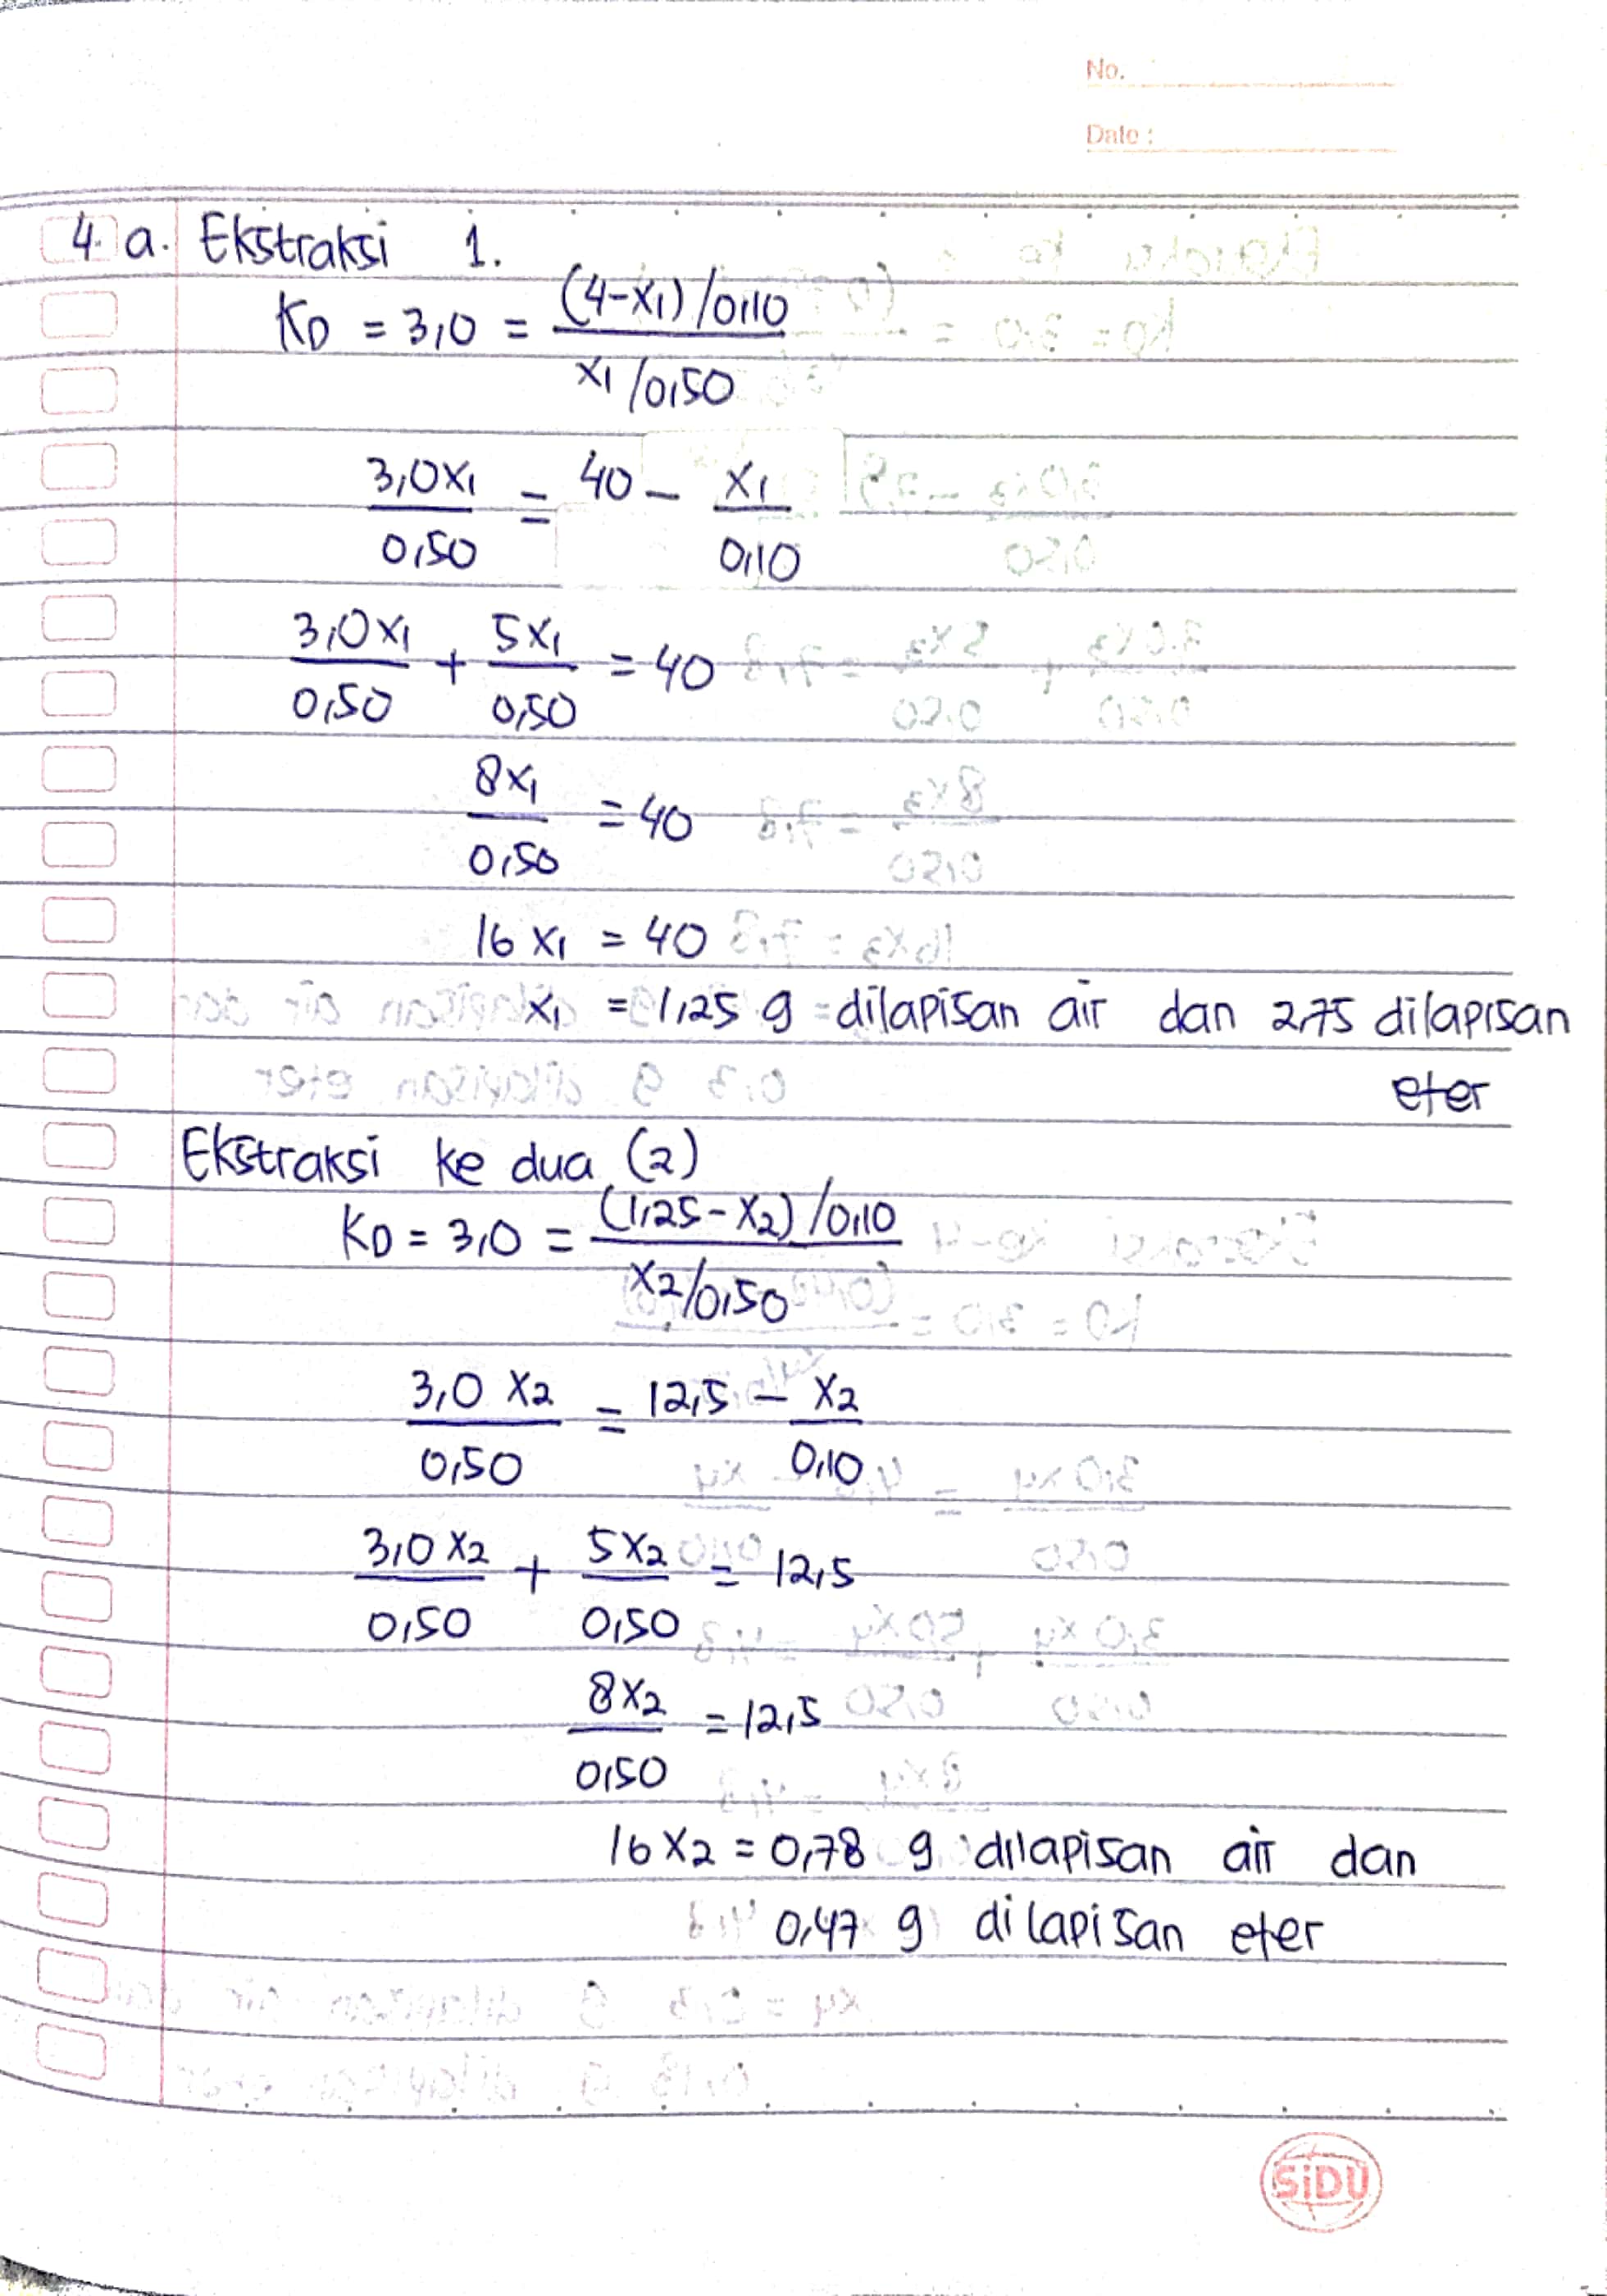 No.
Date :
4. a. Ekstraksi 1.
KD = 3,0 = (4-x1) /0,10
x1 /0,50
3,0x1 = 40 - x1
0,50 0,10
3,0x1 + 5x1 = 40
0,50 0,50
8x1 = 40
0,50
16 x1 = 40
x1 = 1,25 g dilapisan air dan 2,75 dilapisan
eter
Ekstraksi ke dua (2)
KD = 3,0 = (1,25-x2) /0,10
x2/0,50
3,0 x2 = 12,5 - x2
0,50 0,10
3,0 x2 + 5x2 = 12,5
0,50 0,50
8x2 = 12,5
0,50
16x2 = 0,78 g dilapisan air dan
0,47 g dilapisan eter
SiDU